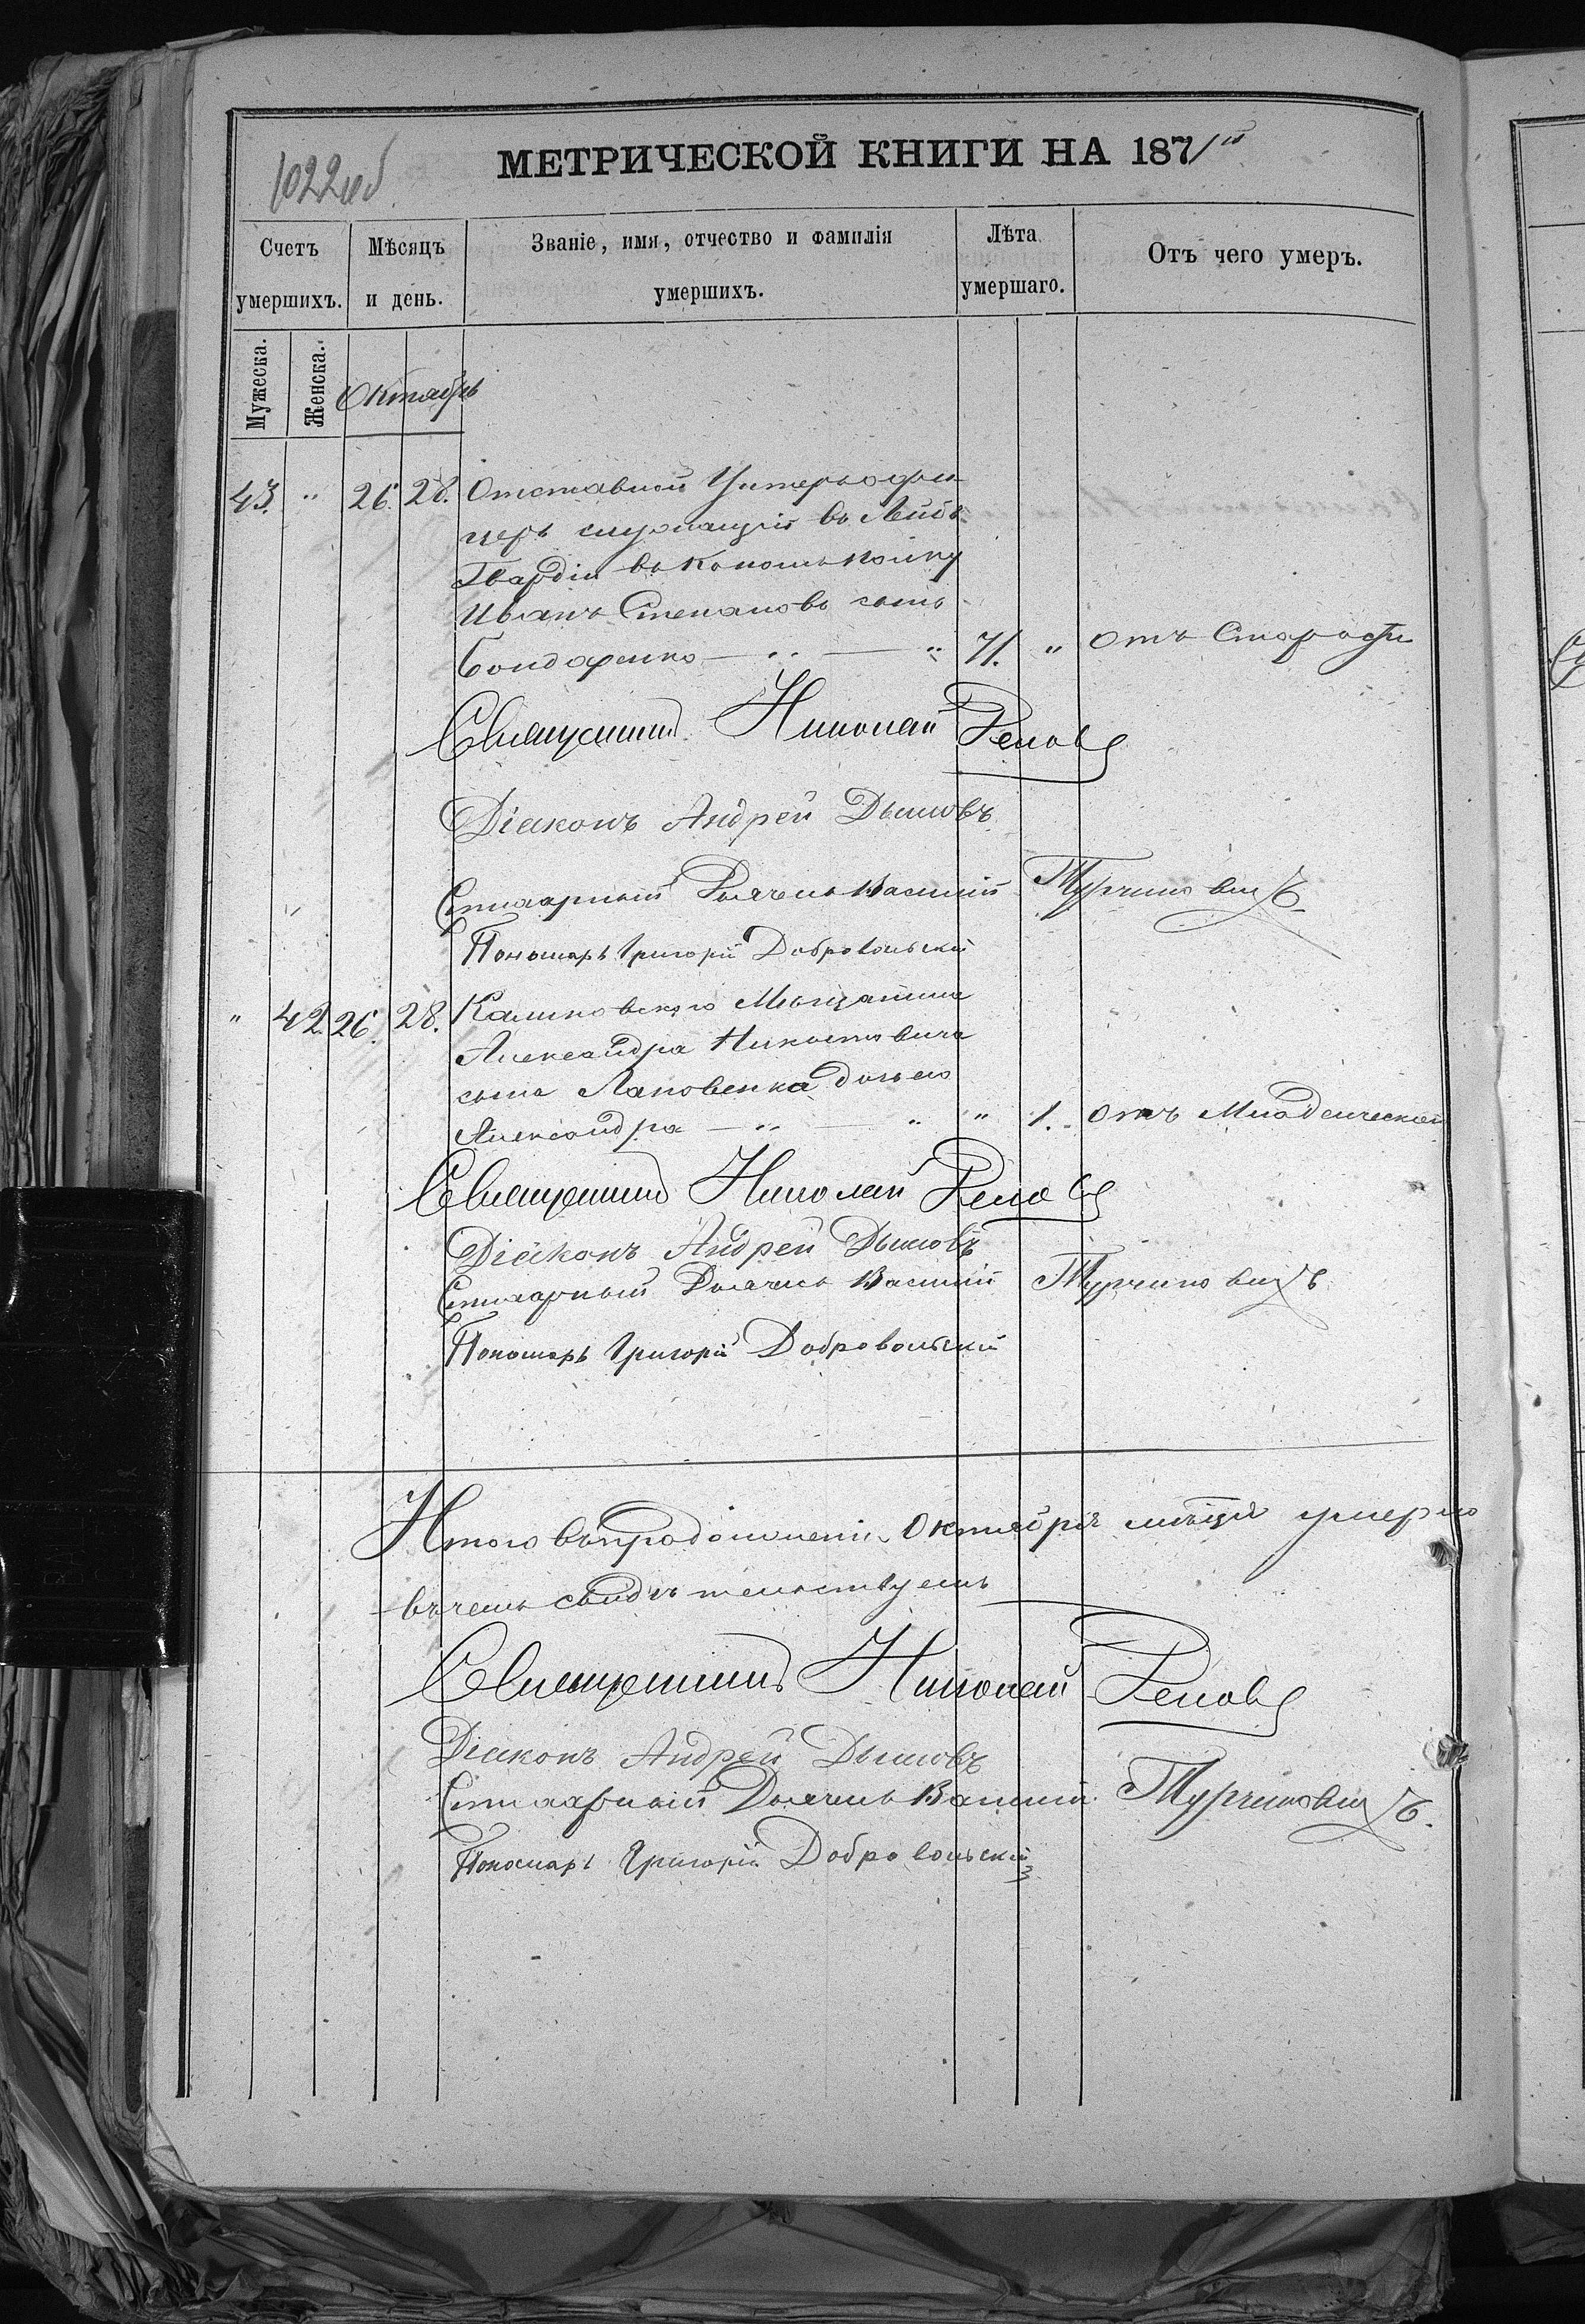 МЕТРИЧЕСКОЙ КНИГИ НА 1871й
1022об
Счетъ умершихъ.
Мѣсяцъ и день.
Званіе, имя, отчество и фамилія умершихъ.
Лѣта умершаго.
Отъ чего умеръ.
Мужеска.
Женска.
Октябрь
43. " 26. 28. Отставной Унтерьофи
церъ служащій въ Лейбъ
Гвардіи
Иванъ Степановъ сынъ
Бондаренко — " — " 71. " Отъ Старости
Священникъ Николай Реповъ
Діаконъ Андрей Дымовъ
Стихарный Дьячекъ Василій Турчиновичъ
Пономарь Григорій Добровольскій
" 42 26. 28. Мѣщанина
Александра Никитовича
сына Лановенка дочь его
Александра — " — " " 1. Отъ Младенческой
Священникъ Николай Реповъ
Діаконъ Андрей Дымовъ
Стихарный Дьячекъ Василій Турчиновичъ
Пономарь Григорій Добровольскій
Итого въ продолженіи Октября мѣсяца умерло
въ чемъ свидѣтельствуемъ
Священникъ Николай Реповъ
Діаконъ Андрей Дымовъ
Стихарный Дьячекъ Василій Турчиновичъ.
Пономарь Григорій Добровольскій